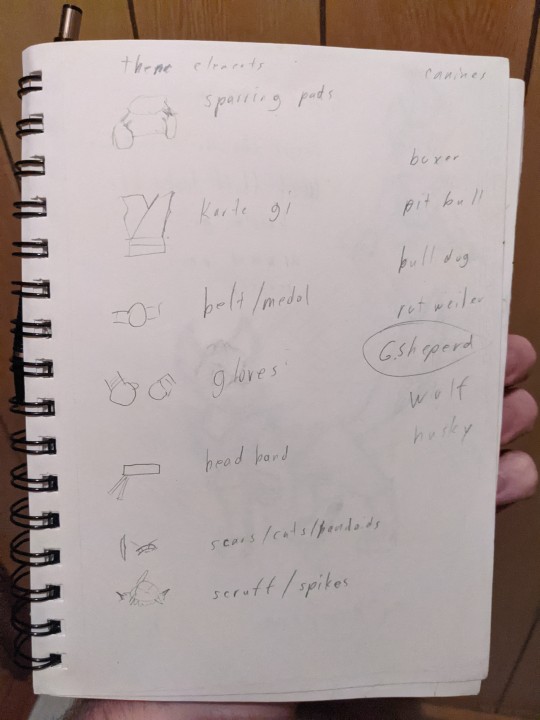 theme elements
sparring pads
karte gi
belt/medal
gloves
head band
scars/cuts/bandaids
scruff/spikes
canines
boxer
pit bull
bull dog
rot weiler
G.sheperd
wolf
husky